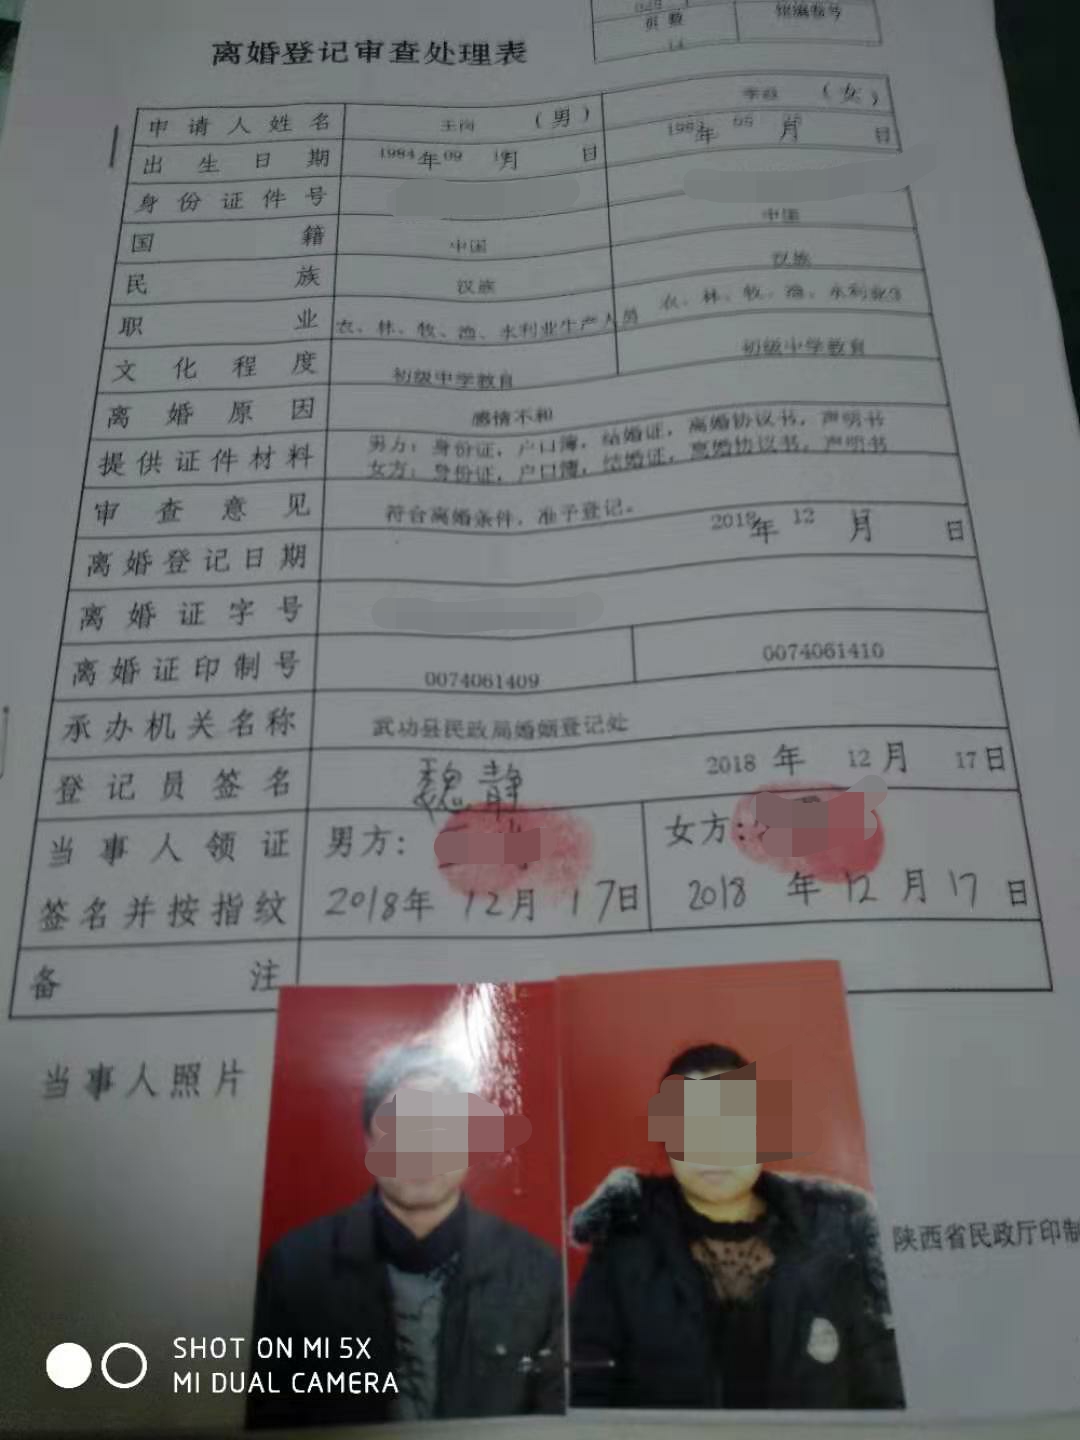 页数
14
离婚登记审查处理表
申请人姓名 （男） （女）
出生日期 1984年09 月 日 年 月 日
身份证件号
国籍 中国 中国
民族 汉族 汉族
职业 农、林、牧、渔、水利业生产人员 农、林、牧、渔、水利业生
文化程度 初级中学教育 初级中学教育
离婚原因 感情不和
提供证件材料 男方：身份证，户口簿，结婚证，离婚协议书，声明书
女方：身份证，户口簿，结婚证，离婚协议书，声明书
审查意见 符合离婚条件，准予登记。
离婚登记日期 2018年 12 月 17 日
离婚证字号
离婚证印制号 0074061409 0074061410
承办机关名称 武功县民政局婚姻登记处
登记员签名 魏静 2018 年 12 月 17 日
当事人领证 男方： 女方：
签名并按指纹 2018年 12月 17日 2018 年 12 月 17 日
备注
当事人照片
陕西省民政厅印制
SHOT ON MI 5X
MI DUAL CAMERA